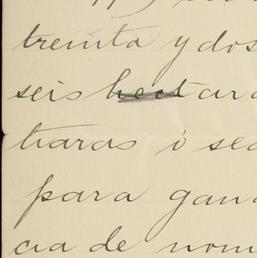 treinta y dos
seis hectar
tiaras ó sea
para gana
cia de nom